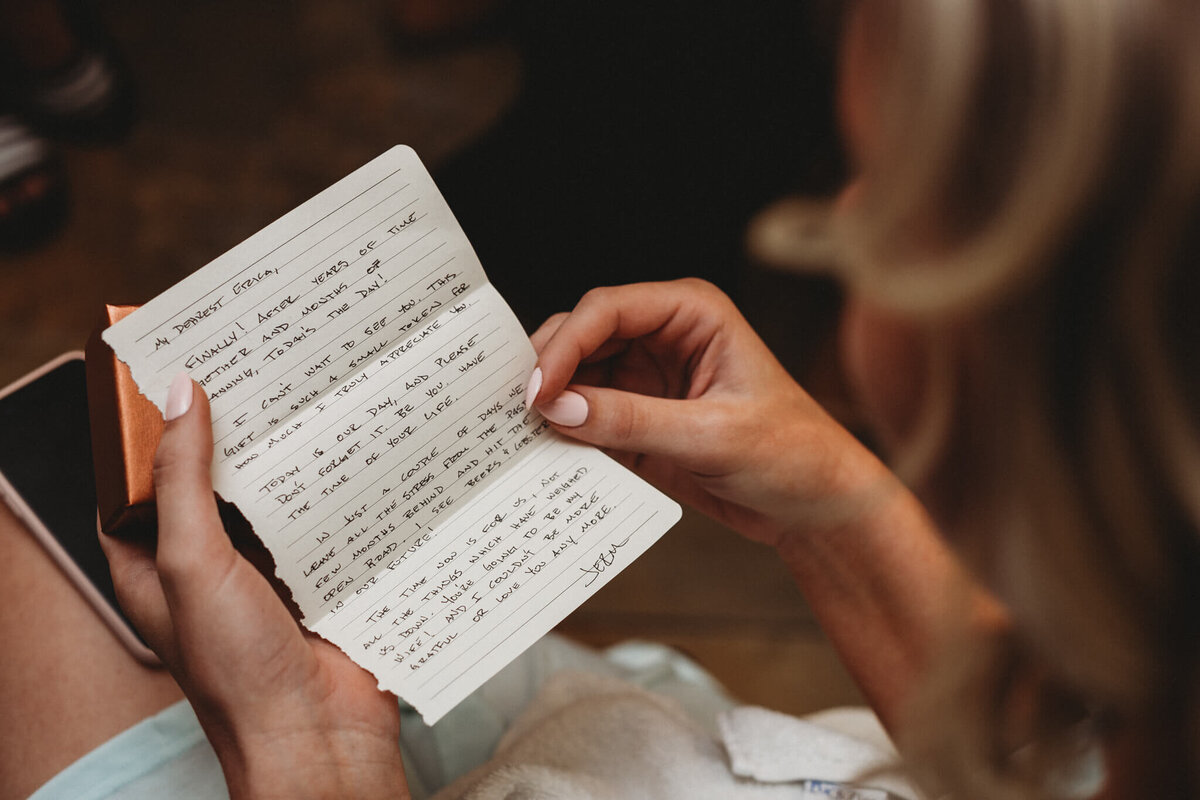 MY DEAREST ERICA,
FINALLY! AFTER YEARS OF TIME
GETHER AND MONTHS OF
ANNING, TODAY'S THE DAY!
I CAN'T WAIT TO SEE YOU. THIS
GIFT IS SUCH A SMALL TOKEN FOR
HOW MUCH I TRULY APPRECIATE YOU.
TODAY IS OUR DAY, AND PLEASE
DON'T FORGET IT. BE YOU. HAVE
THE TIME OF YOUR LIFE.
IN JUST A COUPLE OF DAYS WE
LEAVE ALL THE STRESS FROM THE PAST
FEW MONTHS BEHIND AND HIT THE
OPEN ROAD. I SEE BEERS & LOBSTER
IN OUR FUTURE!
THE TIME NOW IS FOR US, NOT
ALL THE THINGS WHICH HAVE WEIGHED
US DOWN. YOU'RE GOING TO BE MY
WIFE! AND I COULDN'T BE MORE
GRATEFUL OR LOVE YOU ANY MORE.